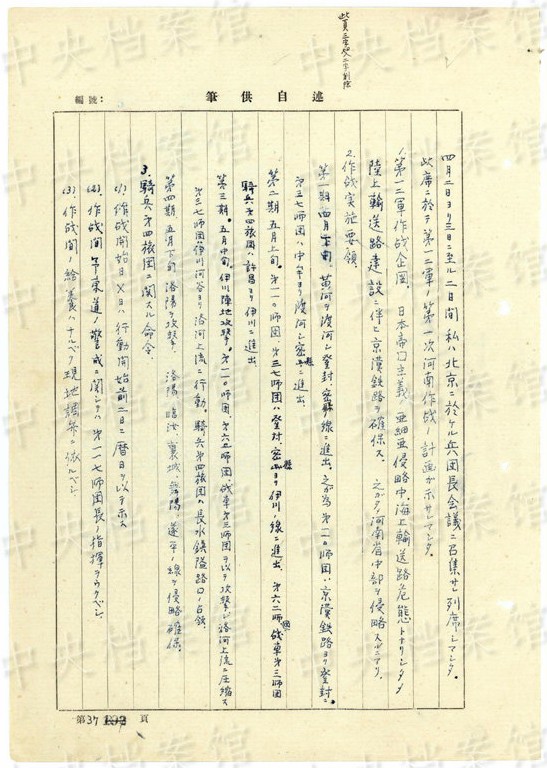 述自供筆
編號:
四月二日ヨリ三日ニ至ル二日間 私ハ北京ニ於ケル兵団長会議ニ召集サレ列席シマシタ。
此席ニ於テ第一二軍ノ第一次河南作戦ノ計画ガ示サレマシタ。
1.第一二軍作戦企図。 日本帝国主義ノ亜細亜侵略中、海上輸送路危態トナリシタメ
陸上輸送路建設ニ伴ヒ京漢鉄路ヲ確保ス。 之ガタメ河南省中部ヲ侵略スルニアリ。
2.作戦実施要領。
第一期 黄河ヲ渡河シ登封、密縣ノ線ニ進出。之ガ為第一一〇師団ハ京漢鉄路ヨリ登封ニ
第三七師団ハ中牟ヨリ渡河シ密縣ニ進出。
第二期 五月上旬。第一一〇師団、第三七師団ハ登封、密縣ヨリ伊川ノ線ニ進出、第六二師団、戦車第三師団
騎兵第四旅団ハ許昌ヨリ伊川ニ進出
第三期。五月中旬、伊川陣地攻撃。第一一〇師団、第六二師団、戦車第三師団ヲ以テ攻撃、洛河上流ニ圧縮ス
第三七師団伊川河谷ヨリ洛河上流ニ行動、騎兵第四旅団ハ長水鎮隘路口ノ占領、
第四期 五月下旬 洛陽ヲ攻撃、 洛陽、臨汝、襄城、舞陽、遂平ノ線ヲ侵略確保、
3.騎兵第四旅団ニ関スル命令、
(1) 作戦開始日X日ハ行動開始前二日ニ暦日ヲ以テ示ス
(2) 作戦間 東道ノ警戒ニ関シテハ第一一七師団長ノ指揮ヲウクベシ
(3) 作戦間ノ給養ハナルベク現地調弁ニ依ルベシ
第37頁
中央档案馆